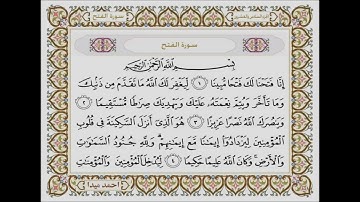 سورة الفتح
بسم الله الرحمن الرحيم
إِنَّا فَتَحْنَا لَكَ فَتْحًا مُّبِينًا ١ لِّيَغْفِرَ لَكَ اللَّهُ مَا تَقَدَّمَ مِن ذَنبِكَ
وَمَا تَأَخَّرَ وَيُتِمَّ نِعْمَتَهُ عَلَيْكَ وَيَهْدِيَكَ صِرَاطًا مُّسْتَقِيمًا ٢
وَيَنصُرَكَ اللَّهُ نَصْرًا عَزِيزًا ٣ هُوَ الَّذِي أَنزَلَ السَّكِينَةَ فِي قُلُوبِ
الْمُؤْمِنِينَ لِيَزْدَادُوا إِيمَانًا مَّعَ إِيمَانِهِمْ وَلِلَّهِ جُنُودُ السَّمَاوَاتِ
وَالْأَرْضِ وَكَانَ اللَّهُ عَلِيمًا حَكِيمًا ٤ لِّيُدْخِلَ الْمُؤْمِنِينَ وَالْمُؤْمِنَاتِ